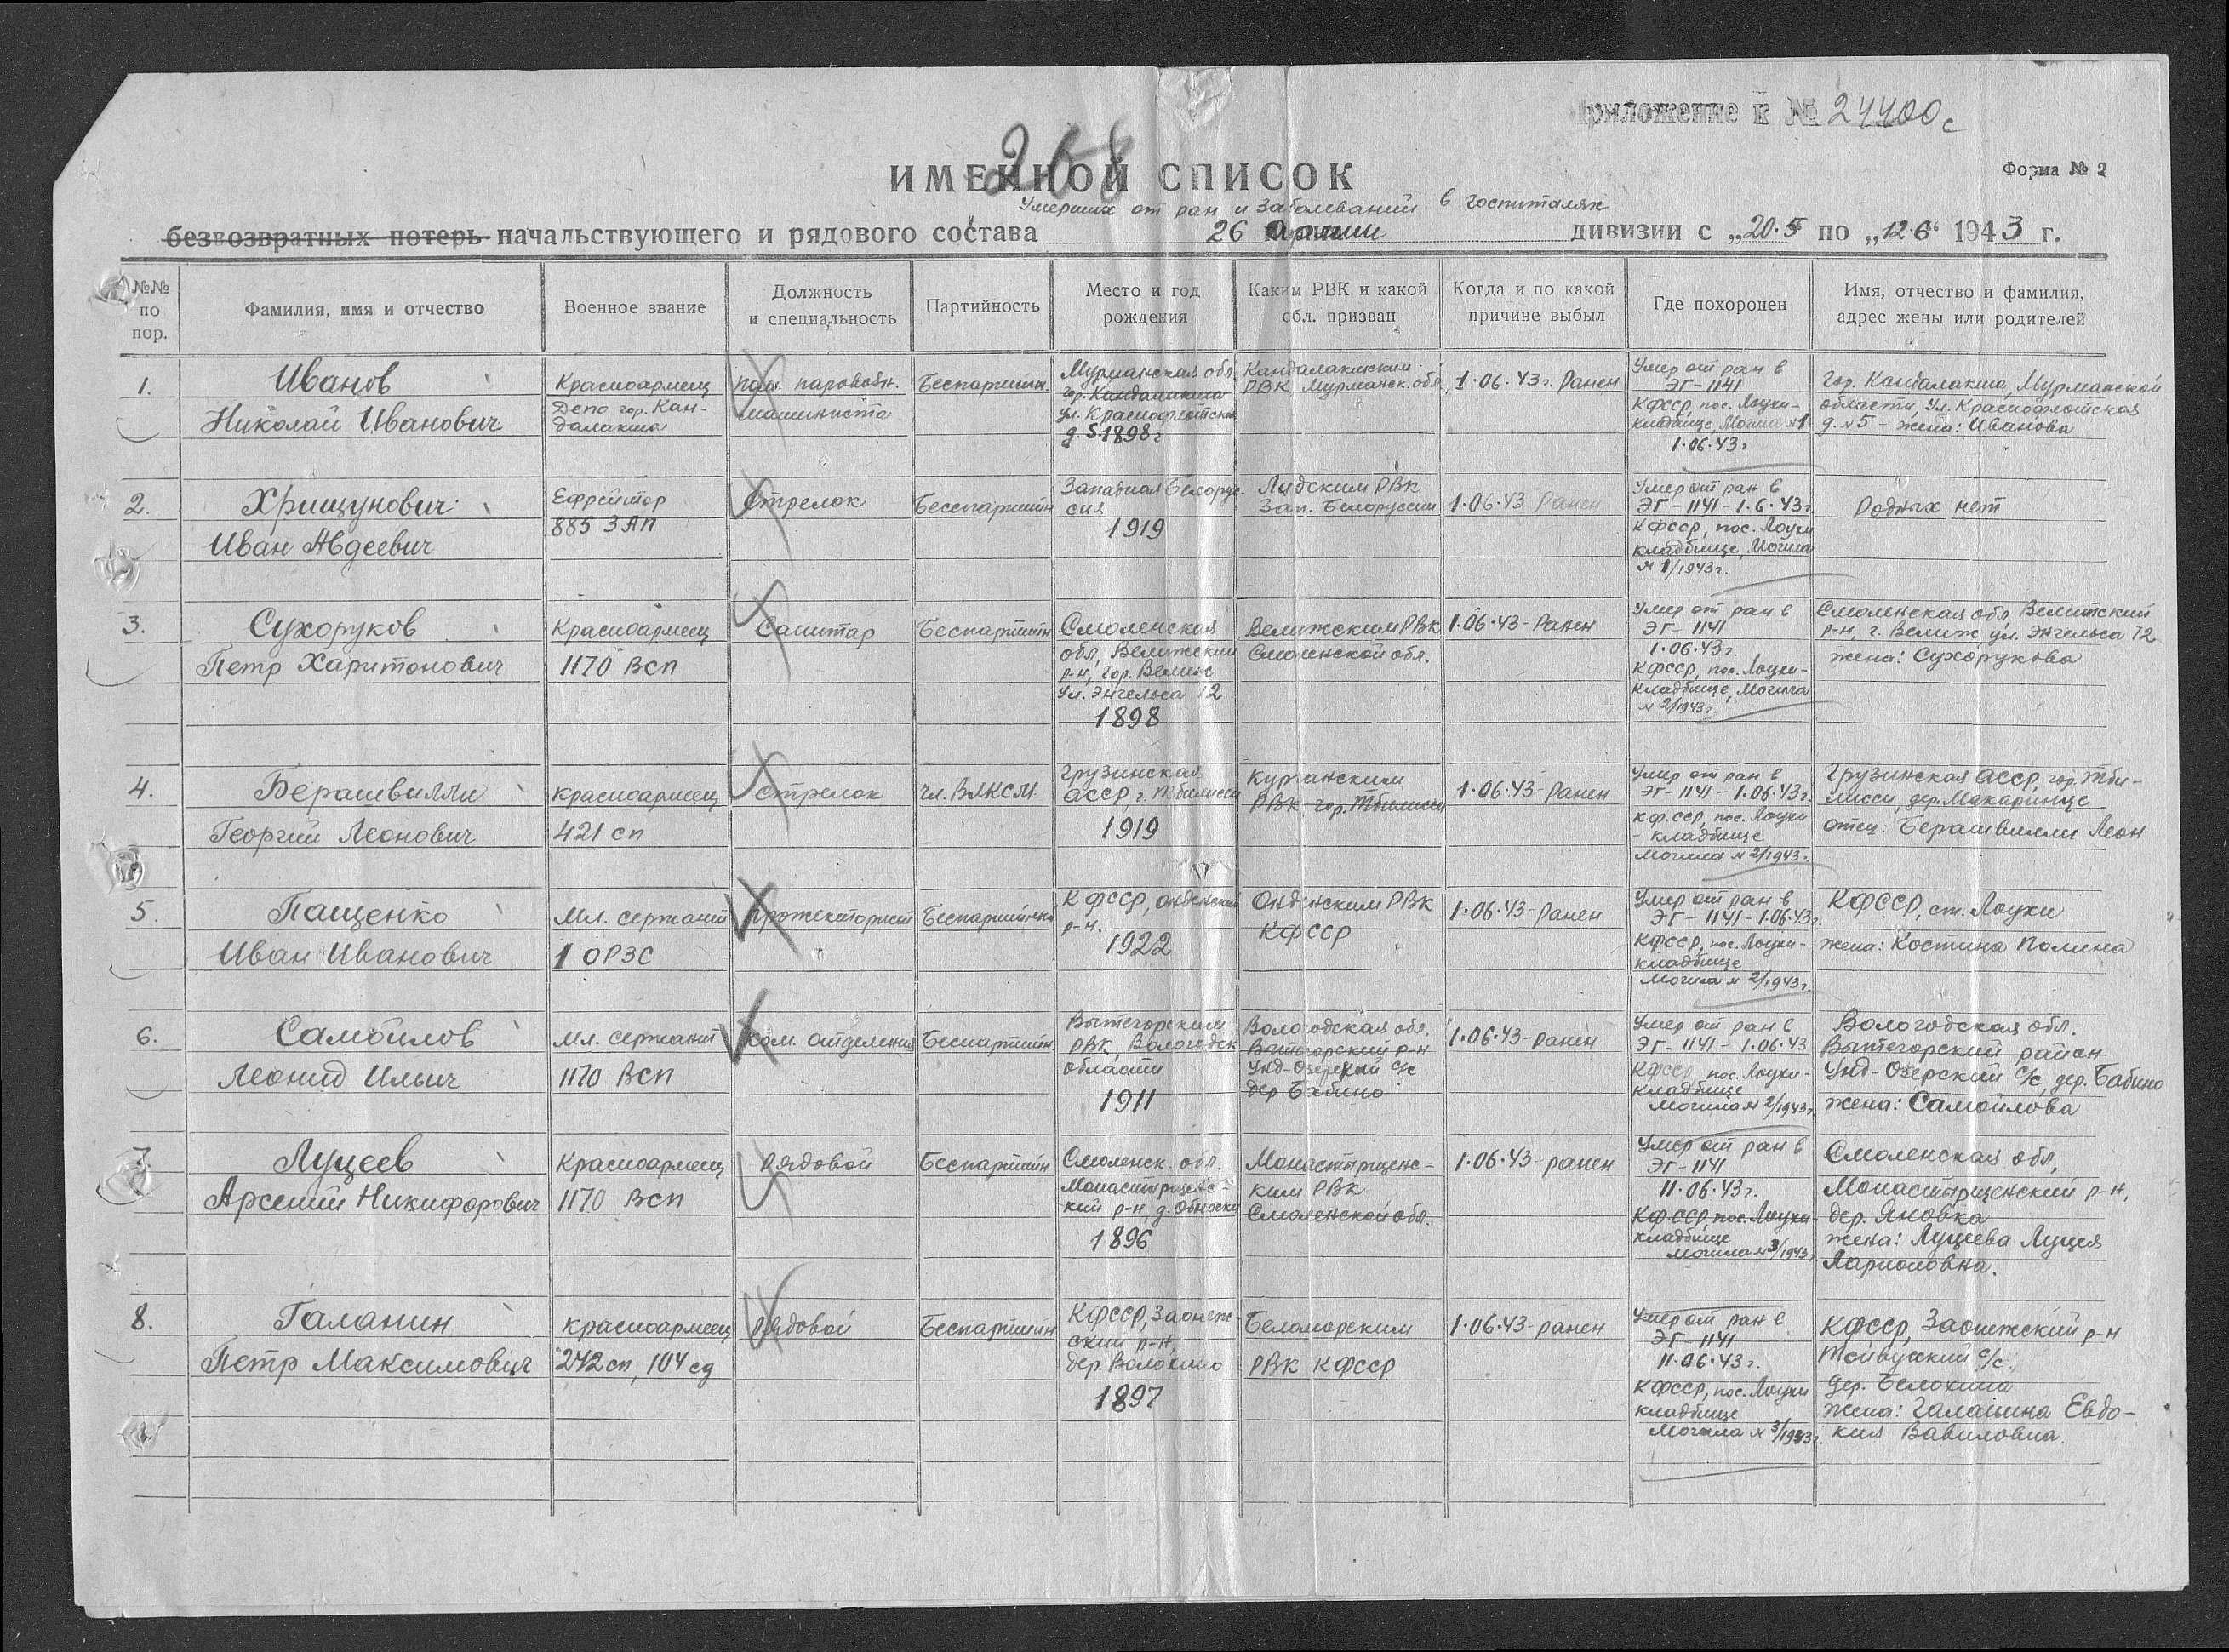 Приложение к № 24400с
268
ИМЕННОЙ СПИСОК
Форма № 2
Умерших от ран и заболеваний в госпиталях
безвозвратных потерь начальствующего и рядового состава 26 Армии дивизии с „20.5 по „12.6" 1943 г.
№№ по пор.
Фамилия, имя и отчество
Военное звание
Должность и специальность
Партийность
Место и год рождения
Каким РВК и какой обл. призван
Когда и по какой причине выбыл
Где похоронен
Имя, отчество и фамилия, адрес жены или родителей
1.
Иванов
Николай Иванович
Красноармеец
Депо гор. Кан-
далакша
пом. паровозн.
машиниста
Беспартийн.
Мурманская обл
гор. Кандалакша
ул. Краснофлотская
д. 5 1898 г
Кандалакшским
РВК Мурманск. обл
1.06.43г. Ранен
Умер от ран в
ЭГ-1141
КФССР, пос. Лоухи-
кладбище, Могила №1
1.06.43г
гор. Кандалакша, Мурманской
области, ул. Краснофлотская
д. №5 - жена: Иванова
2.
Хрищунович
Иван Авдеевич
Ефрейтор
885 ЗАП
Стрелок
Беспартийн
Западная Белорус-
сия
1919
Лидским РВК
Зап. Белоруссии
1.06.43 Ранен
Умер от ран в
ЭГ-1141-1.6.43г
КФССР, пос. Лоухи
кладбище, Могила
№ 1/1943г.
Родных нет
3.
Сухоруков
Петр Харитонович
Красноармеец
1170 ВСП
Санитар
Беспартийн
Смоленская
обл, Велижский
р-н, гор. Велиж
ул. Энгельса 12
1898
Велижским РВК
Смоленской обл.
1.06.43-Ранен
Умер от ран в
ЭГ-1141
1.06.43г.
КФССР, пос. Лоухи-
кладбище, Могила
№ 2/1943г.
Смоленская обл, Велижский
р-н, г. Велиж, ул. Энгельса 12
жена: Сухорукова
4.
Берашвилли
Георгий Леонович
красноармеец
421 сп
Стрелок
чл. ВЛКСМ
Грузинская
АССР г. Тбилисси
1919
Курганским
РВК гор. Тбилисси
1.06.43-Ранен
Умер от ран в
ЭГ-1141-1.06.43г.
КФ.ССР, пос. Лоухи
- кладбище
Могила № 2/1943г.
Грузинская АССР, гор. Тби-
лисси, дер. Макаринце
отец: Берашвилли Леон
5.
Пащенко
Иван Иванович
Мл. сержант
1 ОРЗС
Прожекторист
Беспартийн
КФССР, Онденский
р-н.
1922
Онденским РВК
КФССР
1.06.43-Ранен
Умер от ран в
ЭГ-1141-1.06.43г.
КФССР, пос. Лоухи-
кладбище
Могила № 2/1943г.
КФССР, ст. Лоухи
жена: Костина Полина
6.
Самойлов
Леонид Ильич
Мл. сержант
1170 ВСП
Ком. отделения
Беспартийн.
Вытегорским
РВК, Вологодск
области
1911
Вологодская обл.
Вытегорский р-н
Унд-Озерский с/с
дер Бабино
1.06.43-ранен
Умер от ран в
ЭГ-1141-1.06.43
КФССР пос. Лоухи-
кладбище
Могила № 2/1943г.
Вологодская обл.
Вытегорский район
Унд-Озерский с/с, дер. Бабино
жена: Самойлова
7.
Луцеев
Арсений Никифорович
Красноармеец
1170 ВСП
Рядовой
Беспартийн
Смоленск. обл.
Монастырщенс-
кий р-н, д.
1896
Монастырщенс-
ким РВК
Смоленской обл.
1.06.43-ранен
Умер от ран в
ЭГ-1141
11.06.43г.
КФ.ССР, пос. Лоухи-
кладбище
Могила № 3/1943г.
Смоленская обл,
Монастырщенский р-н,
дер. Яновка
жена: Луцеева Луцея
Ларионовна.
8.
Галанин
Петр Максимович
красноармеец
242 сп, 104 сд
Рядовой
Беспартийн
КФССР, Заонеж-
ский р-н,
дер.
1897
Беломорским
РВК КФССР
1.06.43-ранен
Умер от ран в
ЭГ-1141
11.06.43г.
КФССР, пос. Лоухи
кладбище
Могила № 3/1943г.
КФССР, Заонежский р-н
с/с,
дер. Белохина
жена: Галанина Евдо-
кия Вавиловна.